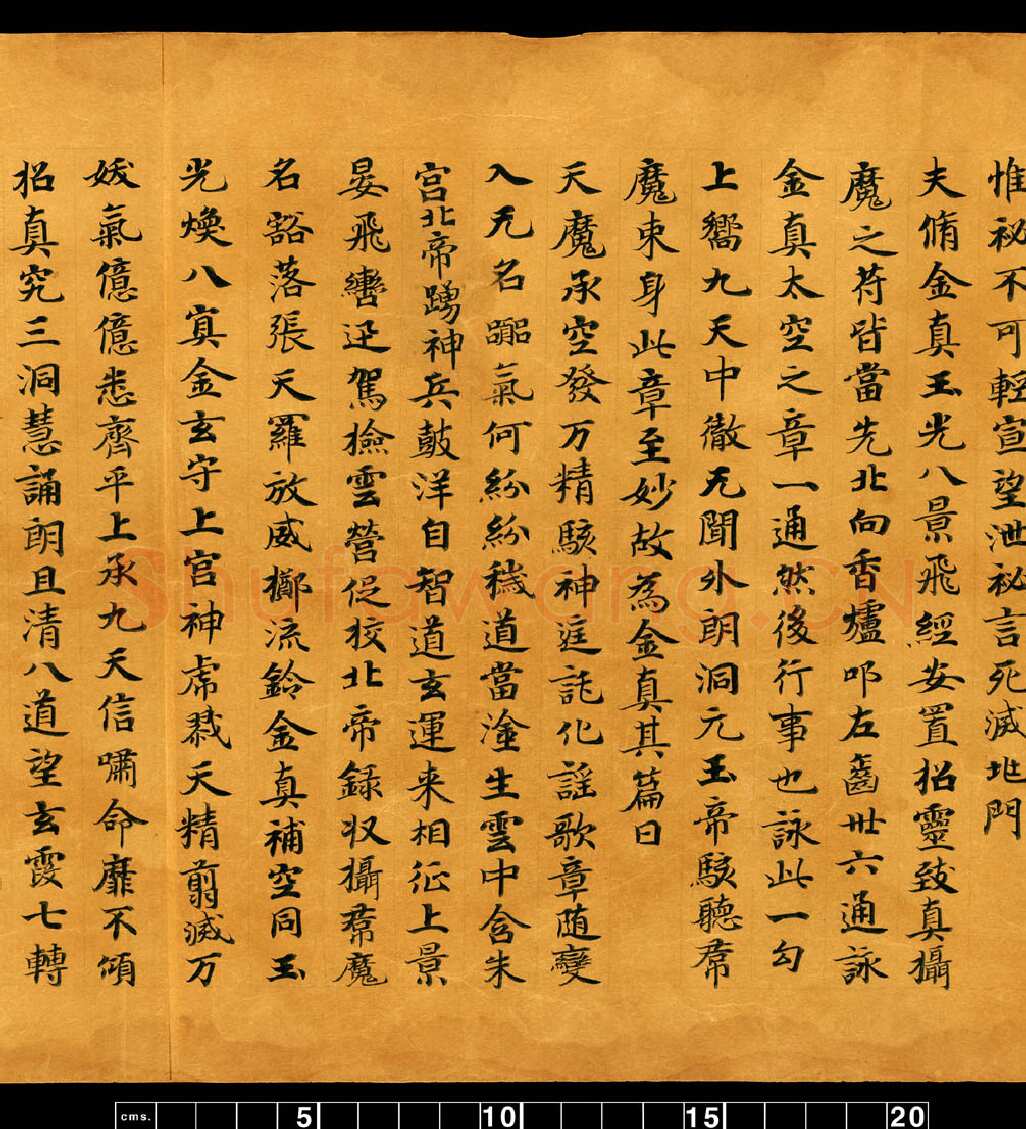 惟祕不可輕宣望泄祕言死滅地門
夫脩金真玉光八景飛經安置招靈致真攝
魔之苻皆當先北向香爐叩左齒卅六通詠
金真太空之章一通然後行事也詠此一句
上嚮九天中徹无聞外朗洞元玉帝駭聽羣
魔束身此章至妙故為金真其篇曰
天魔承空發万精駭神逕託化謡歌章随變
入无名躡氣何紛紛穢道當塗生雲中含朱
宫北帝踴神兵鼓洋自智道玄運来相征上景
晏飛轡迅駕撿雲營促挍北帝録収攝羣魔
名豁落張天羅放威擲流鈴金真補空同玉
光煥八㝠金玄守上宫神虎戮天精翦滅万
妭氣億億悉齊平上承九天信嘯命靡不傾
招真究三洞慧誦朗且清八道望玄霞七轉
Shufawang.CN
cms. 5 10 15 20